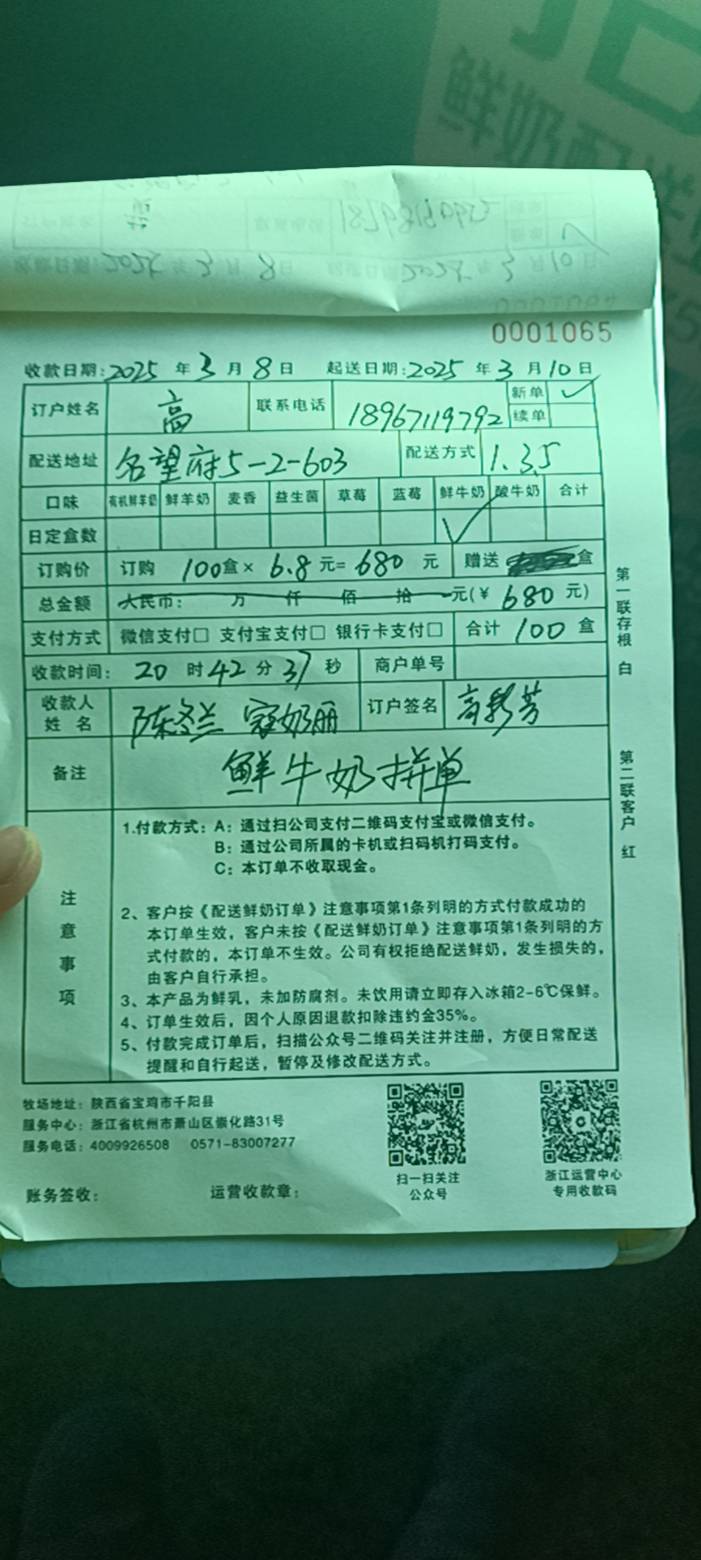 鲜奶配送
0001065
收款日期:2025 年 3 月 8 日 起送日期:2025 年 3 月 10 日
订户姓名 高 联系电话 18967119792 新单 ✓ 续单
配送地址 名望府5-2-603 配送方式 1.3.5
口味 有机鲜羊奶 鲜羊奶 麦香 益生菌 草莓 蓝莓 鲜牛奶 酸牛奶 合计
日定盒数 ✓
订购价 订购 100盒× 6.8元= 680 元 赠送 盒
总金额 人民币: 万 仟 佰 拾 元(¥ 680 元)
支付方式 微信支付□ 支付宝支付□ 银行卡支付□ 合计 100 盒
收款时间: 20 时 42 分 37 秒 商户单号
收款人姓名 陈冬兰 订户签名
备注 鲜牛奶拼单
注意事项
1.付款方式: A: 通过扫公司支付二维码支付宝或微信支付。
B: 通过公司所属的卡机或扫码机打码支付。
C: 本订单不收取现金。
2、客户按《配送鲜奶订单》注意事项第1条列明的方式付款成功的
本订单生效,客户未按《配送鲜奶订单》注意事项第1条列明的方
式付款的,本订单不生效。公司有权拒绝配送鲜奶,发生损失的,
由客户自行承担。
3、本产品为鲜乳,未加防腐剂。未饮用请立即存入冰箱2-6℃保鲜。
4、订单生效后,因个人原因退款扣除违约金35%。
5、付款完成订单后,扫描公众号二维码关注并注册,方便日常配送
提醒和自行起送,暂停及修改配送方式。
第一联存根 白
第二联客户 红
牧场地址: 陕西省宝鸡市千阳县
服务中心: 浙江省杭州市萧山区崇化路31号
服务电话: 4009926508 0571-83007277
扫一扫关注
公众号
浙江运营中心
专用收款码
账务签收: 运营收款章: